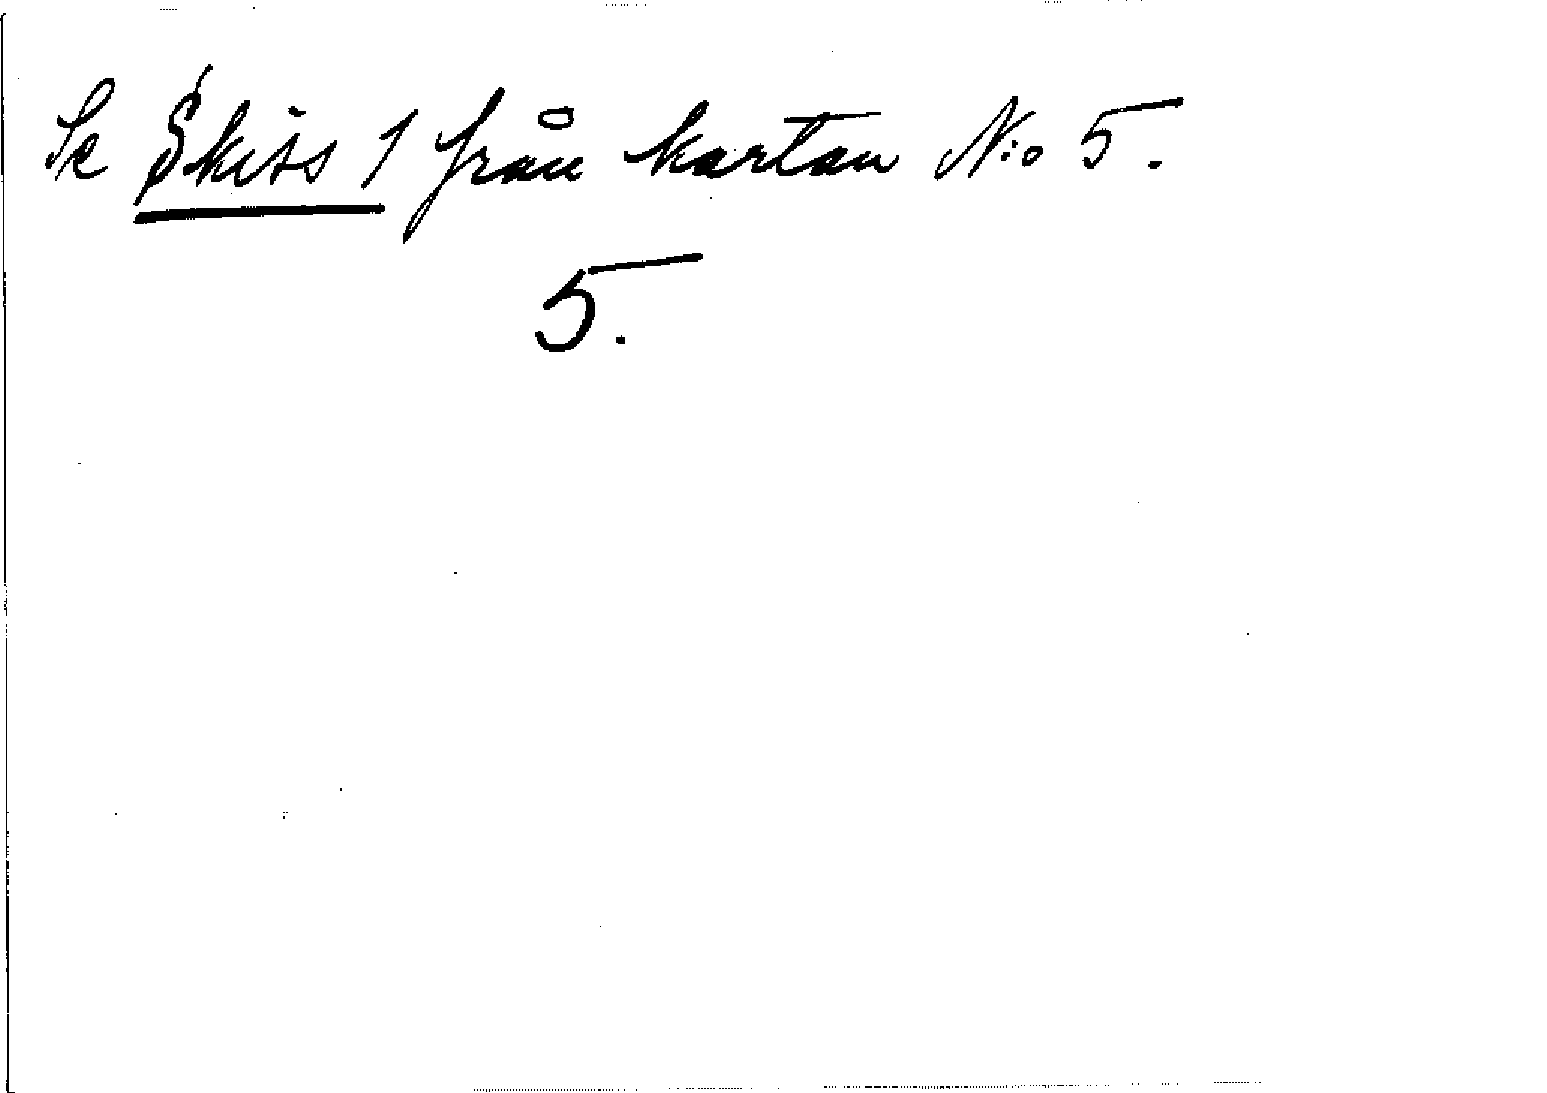 Se Skiss 1 från kartan N:o 5.
5.